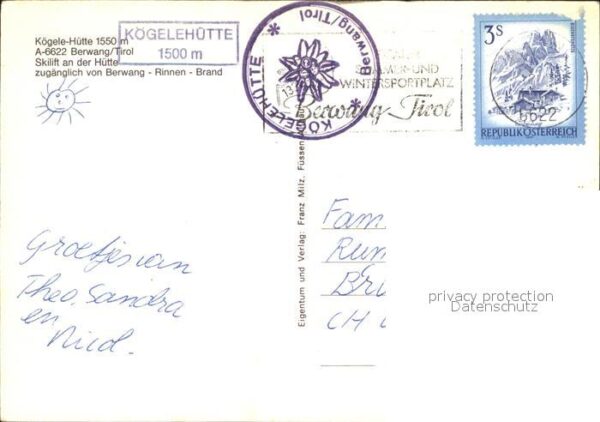 Kögele-Hütte 1550 m
A-6622 Berwang/Tirol
Skilift an der Hütte
zugänglich von Berwang - Rinnen - Brand
KÖGELEHÜTTE
1500 m
KÖGELEHÜTTE * Berwang/Tirol *
UND
WINTERSPORTPLATZ
Berwang - Tirol
3S
REPUBLIK ÖSTERREICH
6622
Eigentum und Verlag: Franz Milz, Füssen
Groetjes van
Theo, Sandra
en
Nicol.
Fam
Run
Bri
CH
privacy protection
Datenschutz